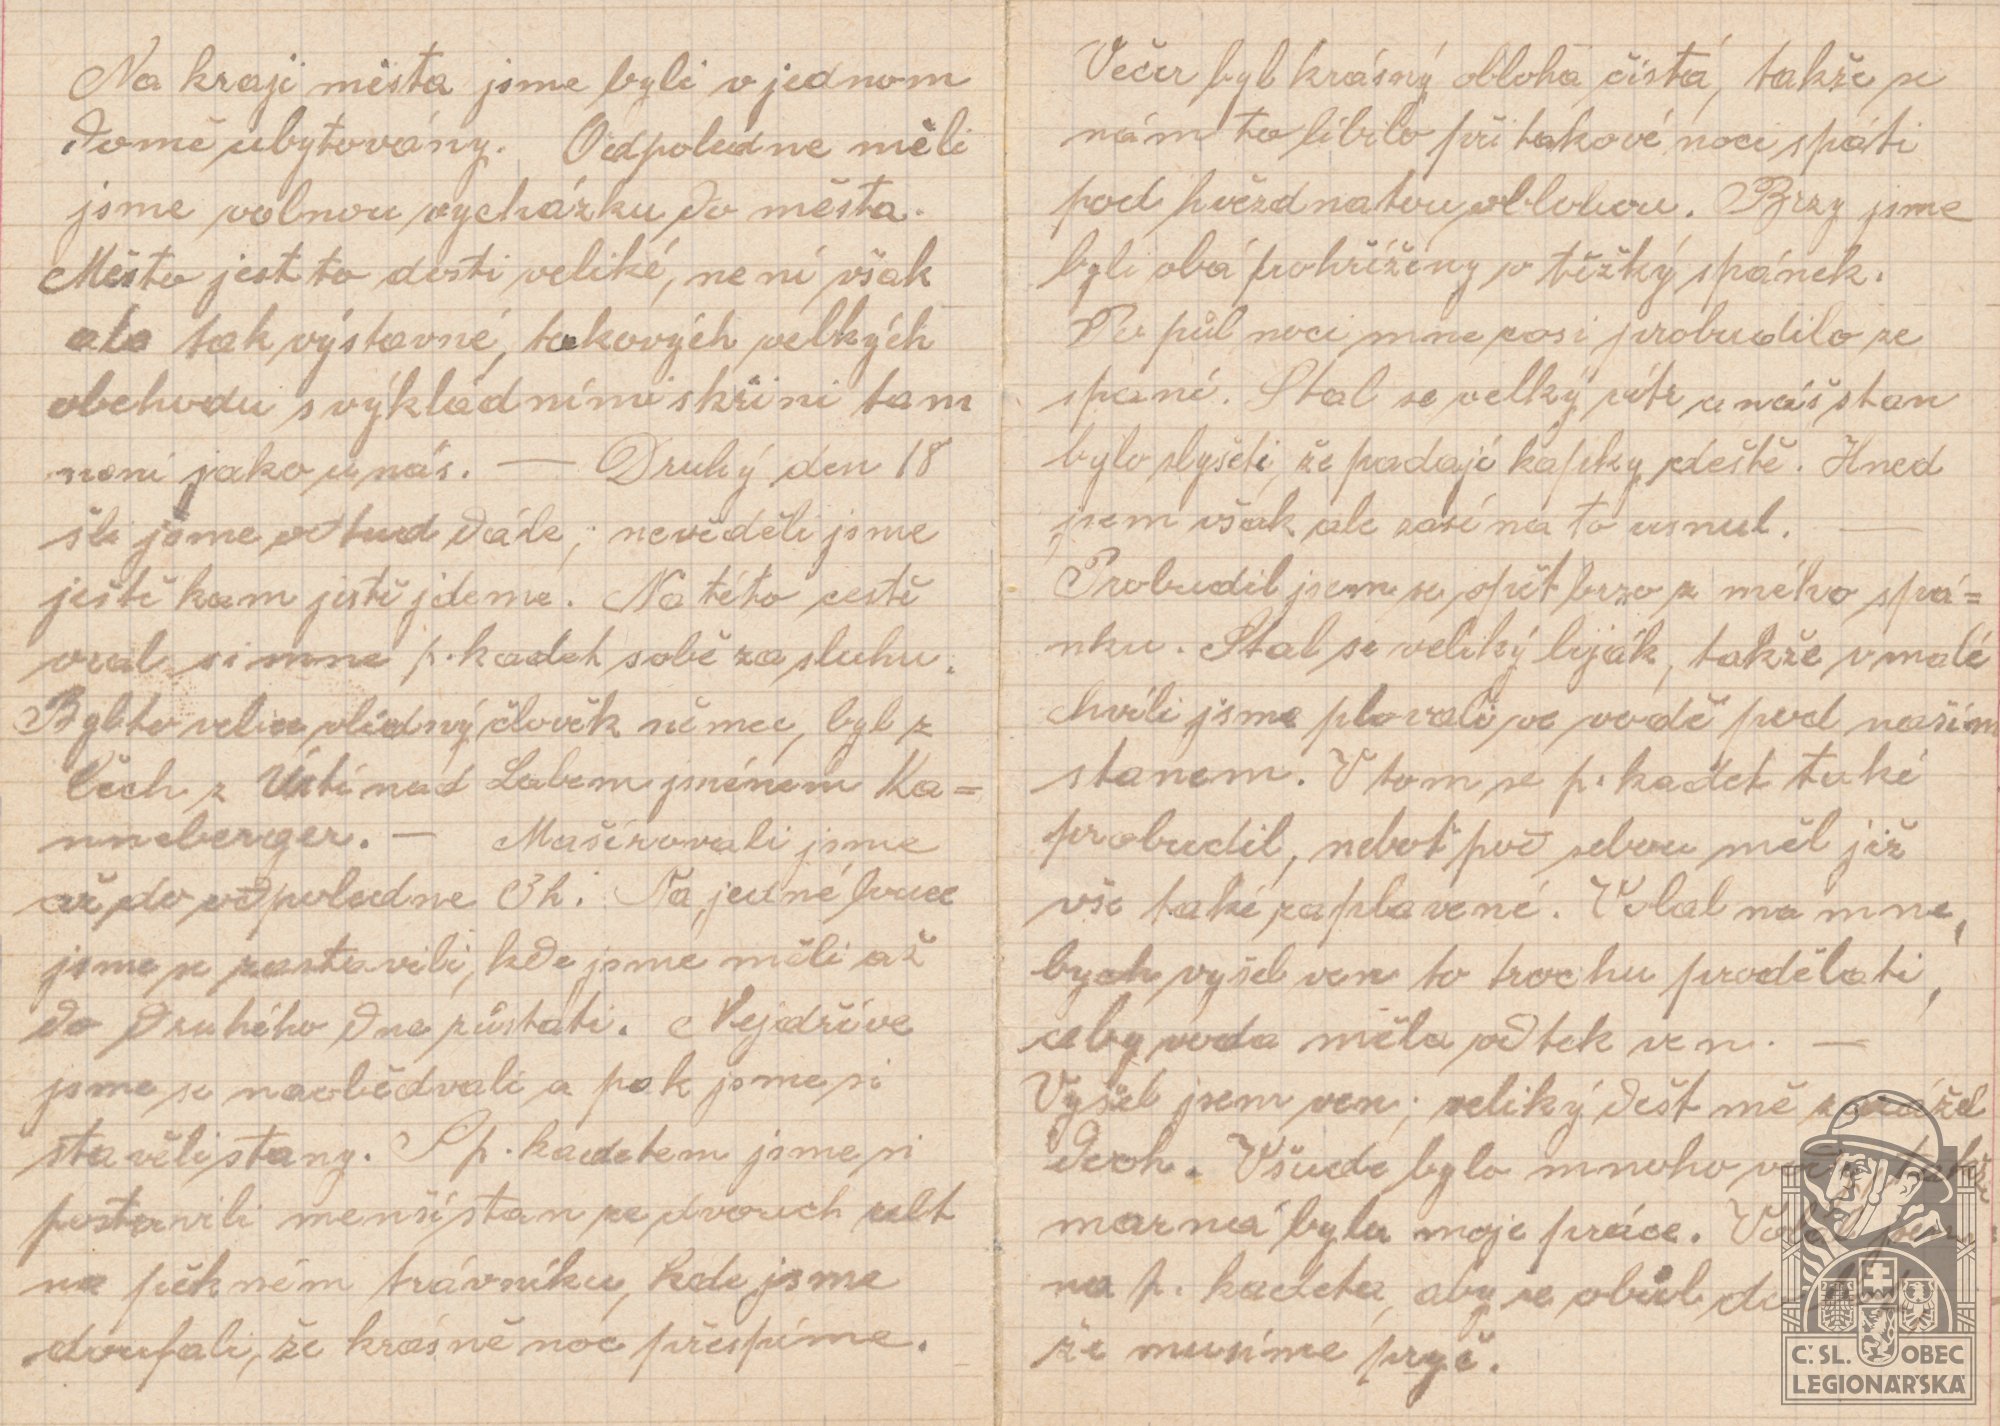 Na kraji města jsme byli v jednom
domě ubytovány. Odpoledne měli
jsme volnou vycházku do města.
Město jest to dosti veliké, není však
ale tak výstavné, takových velkých
obchodu s výkládními skříni tam
neni jako u nás. — Druhý den 18
šli jsme odtud dále; nevěděli jsme
ještě kam jistě jdeme. Na této cestě
vzal si mne p. kadet sobě za sluhu.
Byl to velice vlídný člověk němec, byl z
Čech z Ústí nad Labem jménem Ka=
nneberger. — Mašírovali jsme
až do odpoledne 3 h. Na jedné louce
jsme se zastavili, kde jsme měli až
do druhého dne zůstati. Nejdříve
jsme se naobědvali a pak jsme si
stavěli stany. S p. kadetem jsme si
postavili menší stan ze dvouch celt
na pěkném trávníku, kde jsme
doufali, že krásně noc přespíme.
Večer byl krásný obloha čistá, takže se
nám to líbilo při takové noci spáti
pod hvězdnatou oblohou. Brzy jsme
byli oba pohříženy v těžký spánek.
Po půl noci mne cosi probudilo ze
spaní. Stal se velký vítr a náš stan
bylo slyšeti, že padají kapky deště. Hned
jsem však ale zasí na to usnul. —
Probudil jsem se opět brzo z mého spá=
nku. Stal se veliký liják, takže v malé
chvíli jsme plovali ve vodě pod naším
stanem. V tom se p. kadet také
probudil, neboť pod sebou měl již
vše také zaplavené. Volal na mne,
bych vyšel ven to trochu prodělati,
aby voda měla odtek ven. —
Vyšel jsem ven; veliký dešt mě zarážel
dech. Všude bylo mnoho takže
marná byla moje práce. Volal jsem
na p. kadeta, aby se obul
že musíme pryč.
Č. SL. OBEC
LEGIONÁŘSKÁ